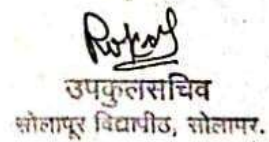 उपकुलसचिव
सोलापूर विद्यापीठ, सोलापर.